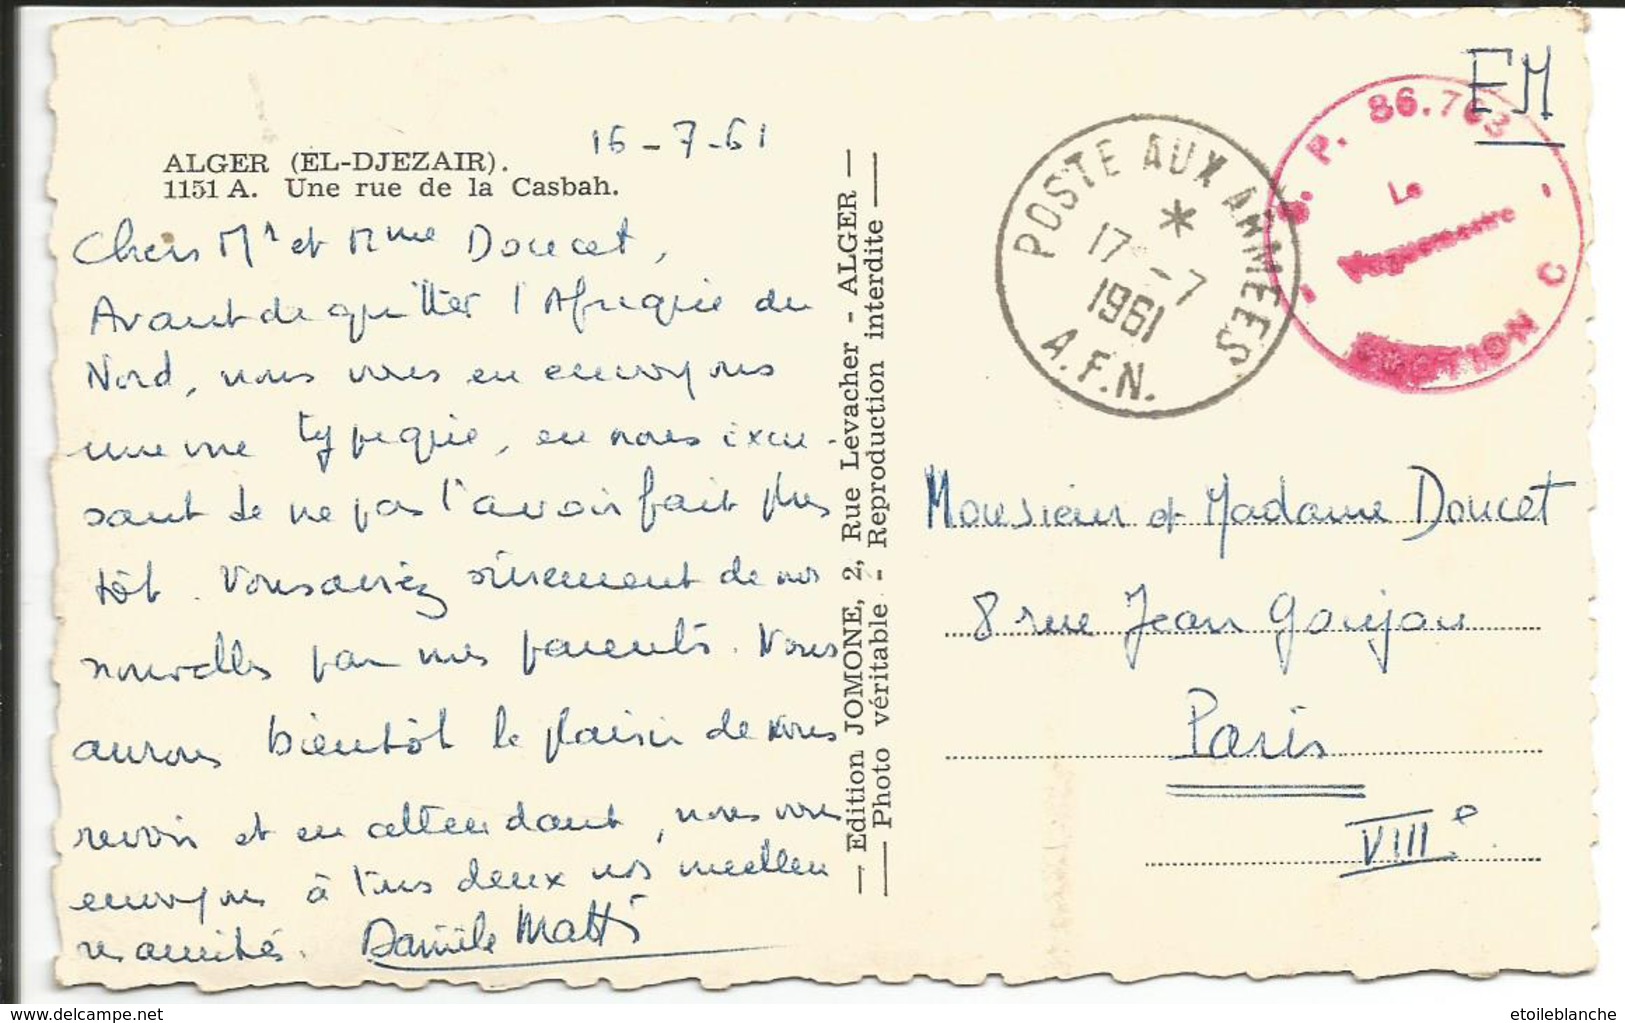 ALGER (EL-DJEZAIR).
1151 A. Une rue de la Casbah.
16-7-61
Chers Mr et Mme Doucet,
Avant de quitter l'Afrique du
Nord, nous vous en envoyons
une vue typique, en nous excu-
sant de ne pas l'avoir fait plus
tôt. Vous aviez sûrement de nos
nouvelles par mes parents. Nous
aurons bientôt le plaisir de vous
revoir et en attendant, nous vous
envoyons à tous deux nos meilleu
res amitiés. Danièle Matti
Edition JOMONE, 2, Rue Levacher - ALGER
Photo véritable - Reproduction interdite
POSTE AUX ARMEES
*
17-7
1961
A.F.N.
EM
S. P. 86.763
Le
SECTION C
Monsieur et Madame Doucet
8 rue Jean Goujon
Paris
VIIIe
delcampe.net
etoileblanche